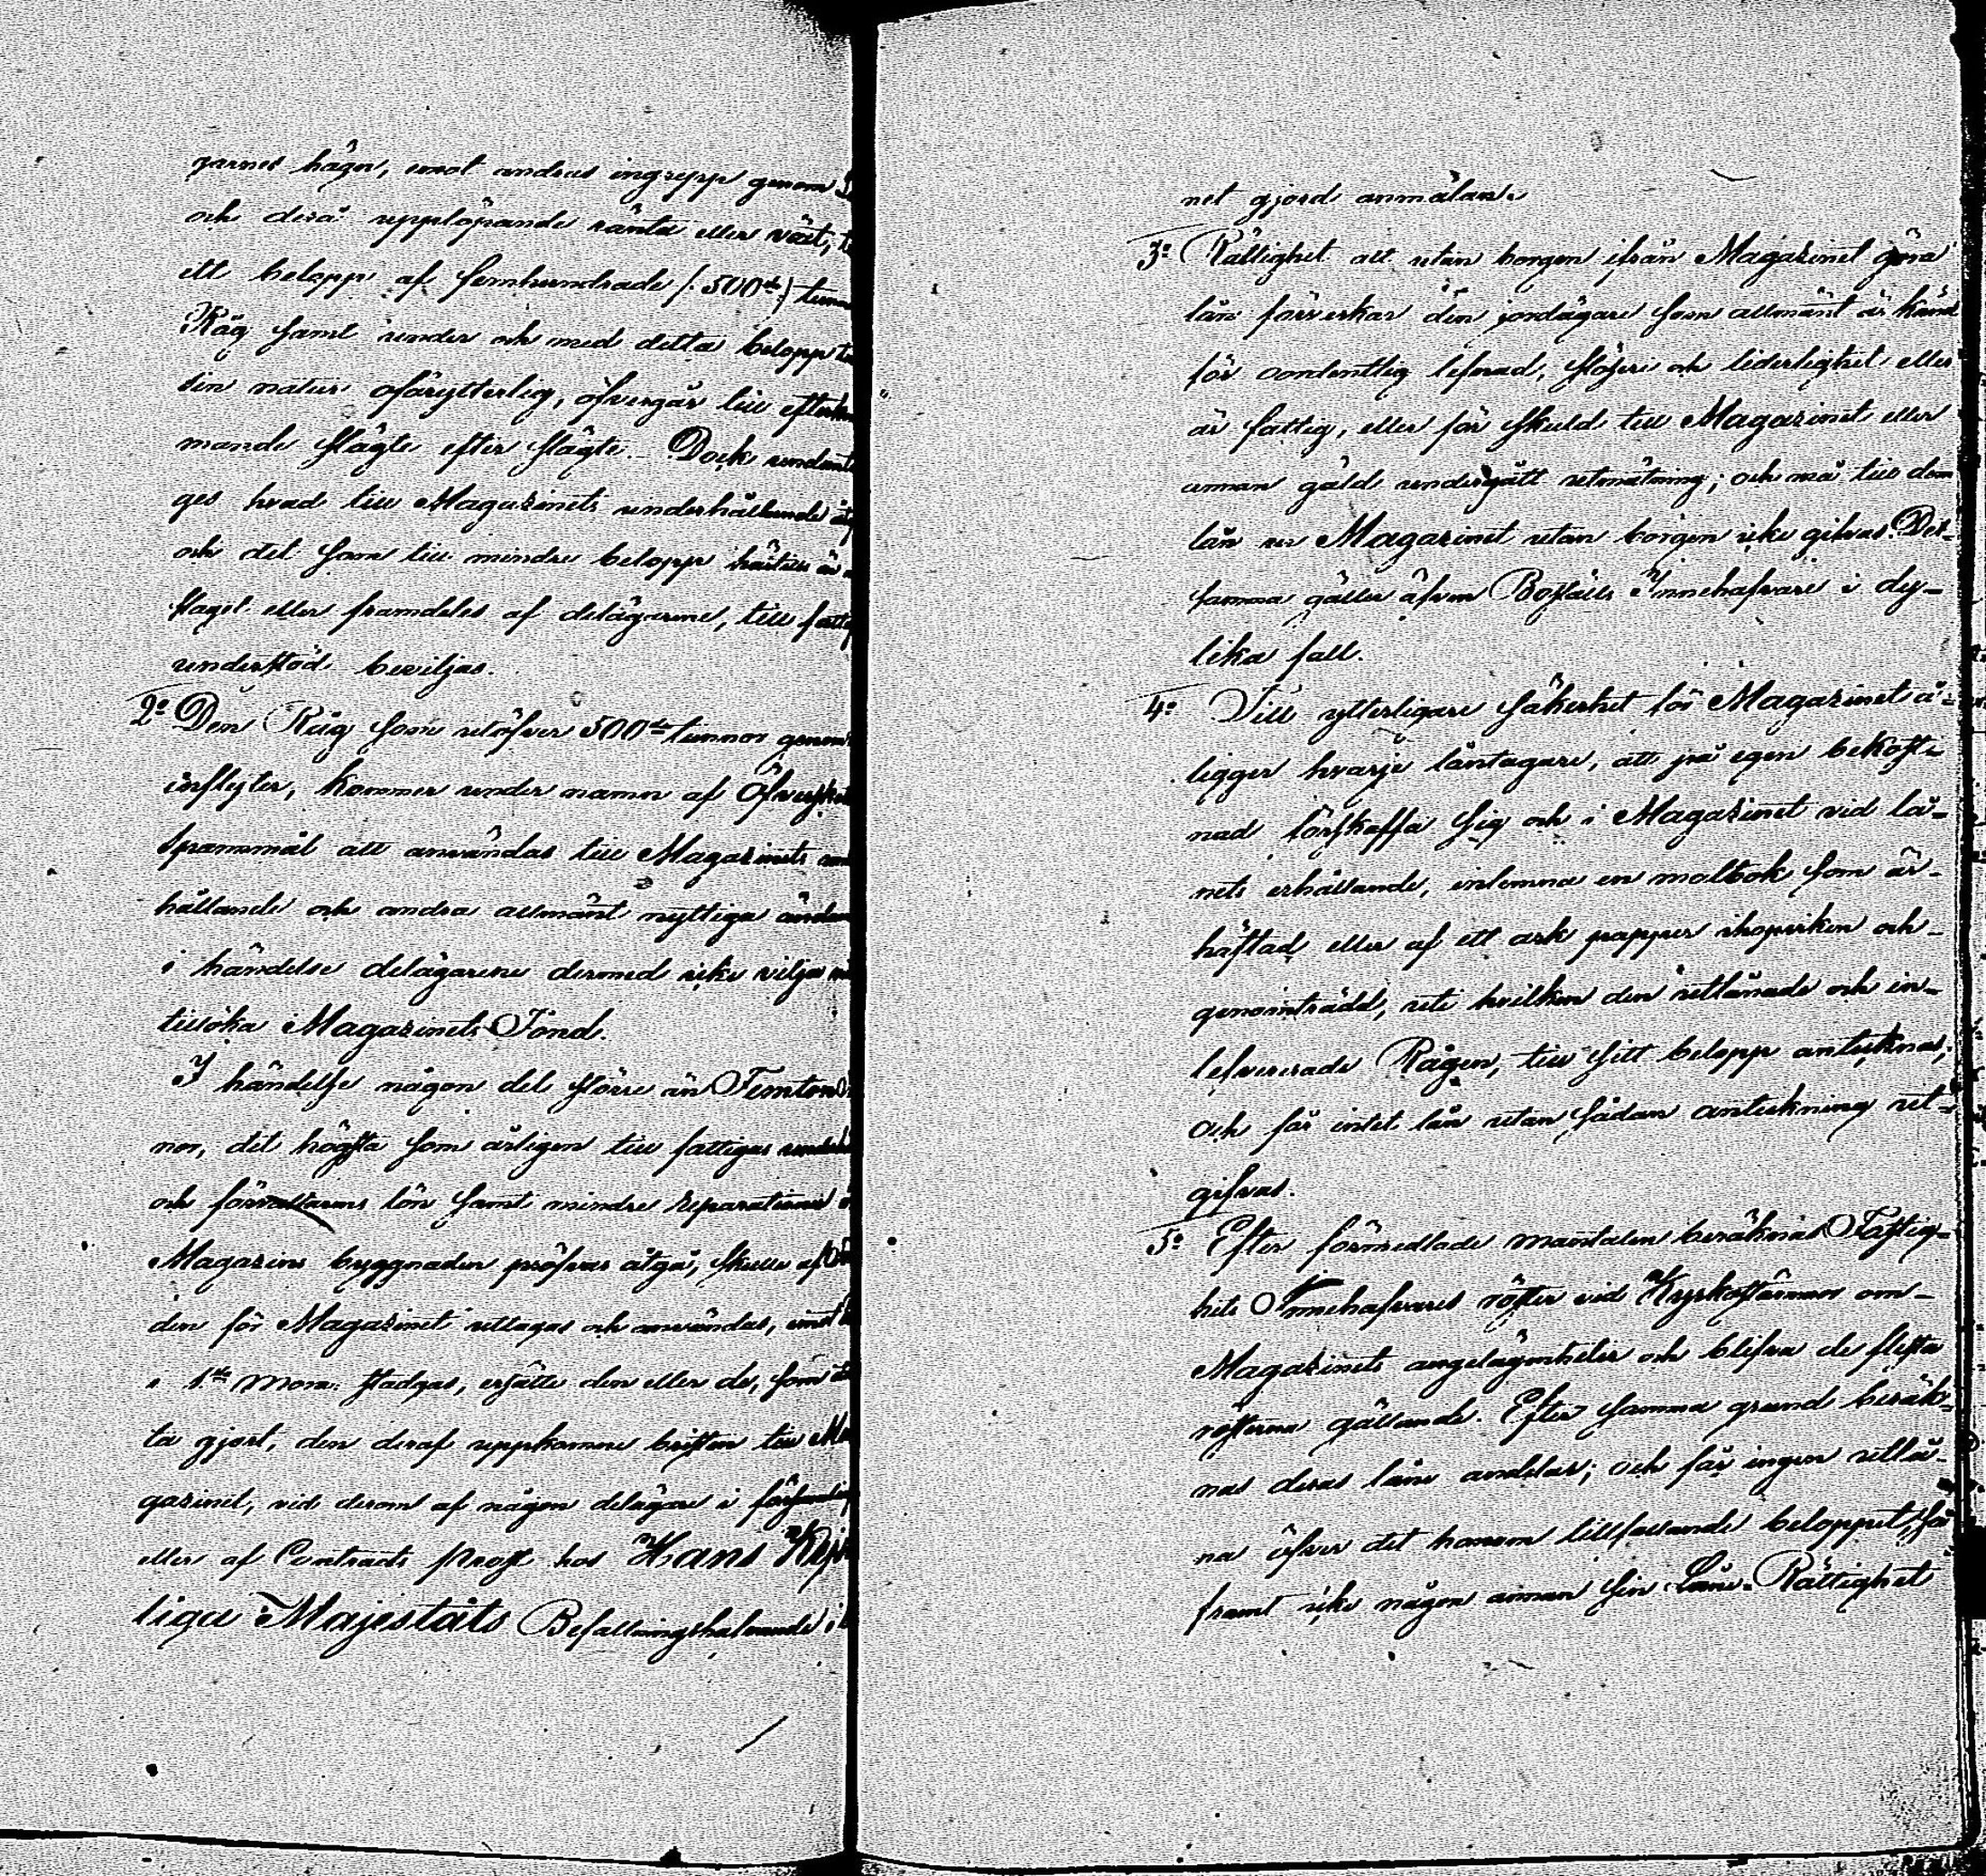 garnes hägn, emot andras ingrepp genom
och derå upplöpande ränta eller växt,
ett belopp af femhundrade /: 500de :/ tunn
Råg samt under och med detta belopp
sin natur oförytterlig, öfvergår till efterkom
mande slägte efter slägte. Dock undant
ges hvad till Magazinets underhållande
och det som till mindre belopp härtill är
slagit eller framdeles af delägarne, till fattig
understöd beviljas.
2o Den Råg som utöfver 500de tunnor genom
inflyter, kommer under namn af Öfverskott
spannmål att användas till Magazinets
hållande och andra allmänt nyttiga ändam
i händelse delägarene dermed icke vilja
tillöka Magazinets Fond.
I händelse någon del större än Femton
nor, det högsta som årligen till fattigas
och förvaltarens lön samt mindre reparationer
Magazins byggnaden pröfvas åtgå, skulle af
den för Magazinet uttagas och användas, emot
1ste Mom: stadgas, ersätte den eller de, som
ta gjort, den deraf uppkomne bristen till Ma
gazinet, vid derom af någon delägare i församling
eller af Contracts Prost hos Hans Kejser
liga Majestäts Befallningshafvande i
net gjord anmälan.
3o Rättighet att utan borgen ifrån Magazinet göra
lån förverkar den jordägare som allmänt är känd
för oordentlig lefnad, slöseri och liderlighet eller
är fattig, eller för skuld till Magazinet eller
annan gäld undergått utmätning; och må till dem
lån ur Magazinet utan borgen icke gifvas. Det-
samma gäller äfven Boställs Innehafvare i dy-
lika fall.
4o Till ytterligare säkerhet för Magazinet å-
ligger hvarje låntagare, att på egen bekost-
nad förskaffa sig och i Magazinet vid lå-
nets erhållande, inlemna en motbok som är
häftad eller af ett ark papper ihopviken och
genomträdd, uti hvilken den utlånade och in-
lefvererade Rågen, till sitt belopp antecknas,
och får intet lån utan sådan anteckning ut-
gifvas.
5o Efter förmedlade mantalen beräknas Fastig-
hets Innehafvares röster vid Kyrkostämmor om
Magazinets angelägenheter och blifva de flesta
rösterna gällande. Efter samma grund beräk-
nas deras låne andelar; och får ingen utlå-
na öfver det honom tillfallande beloppet, så
framt icke någon annan sin Låne-Rättighet